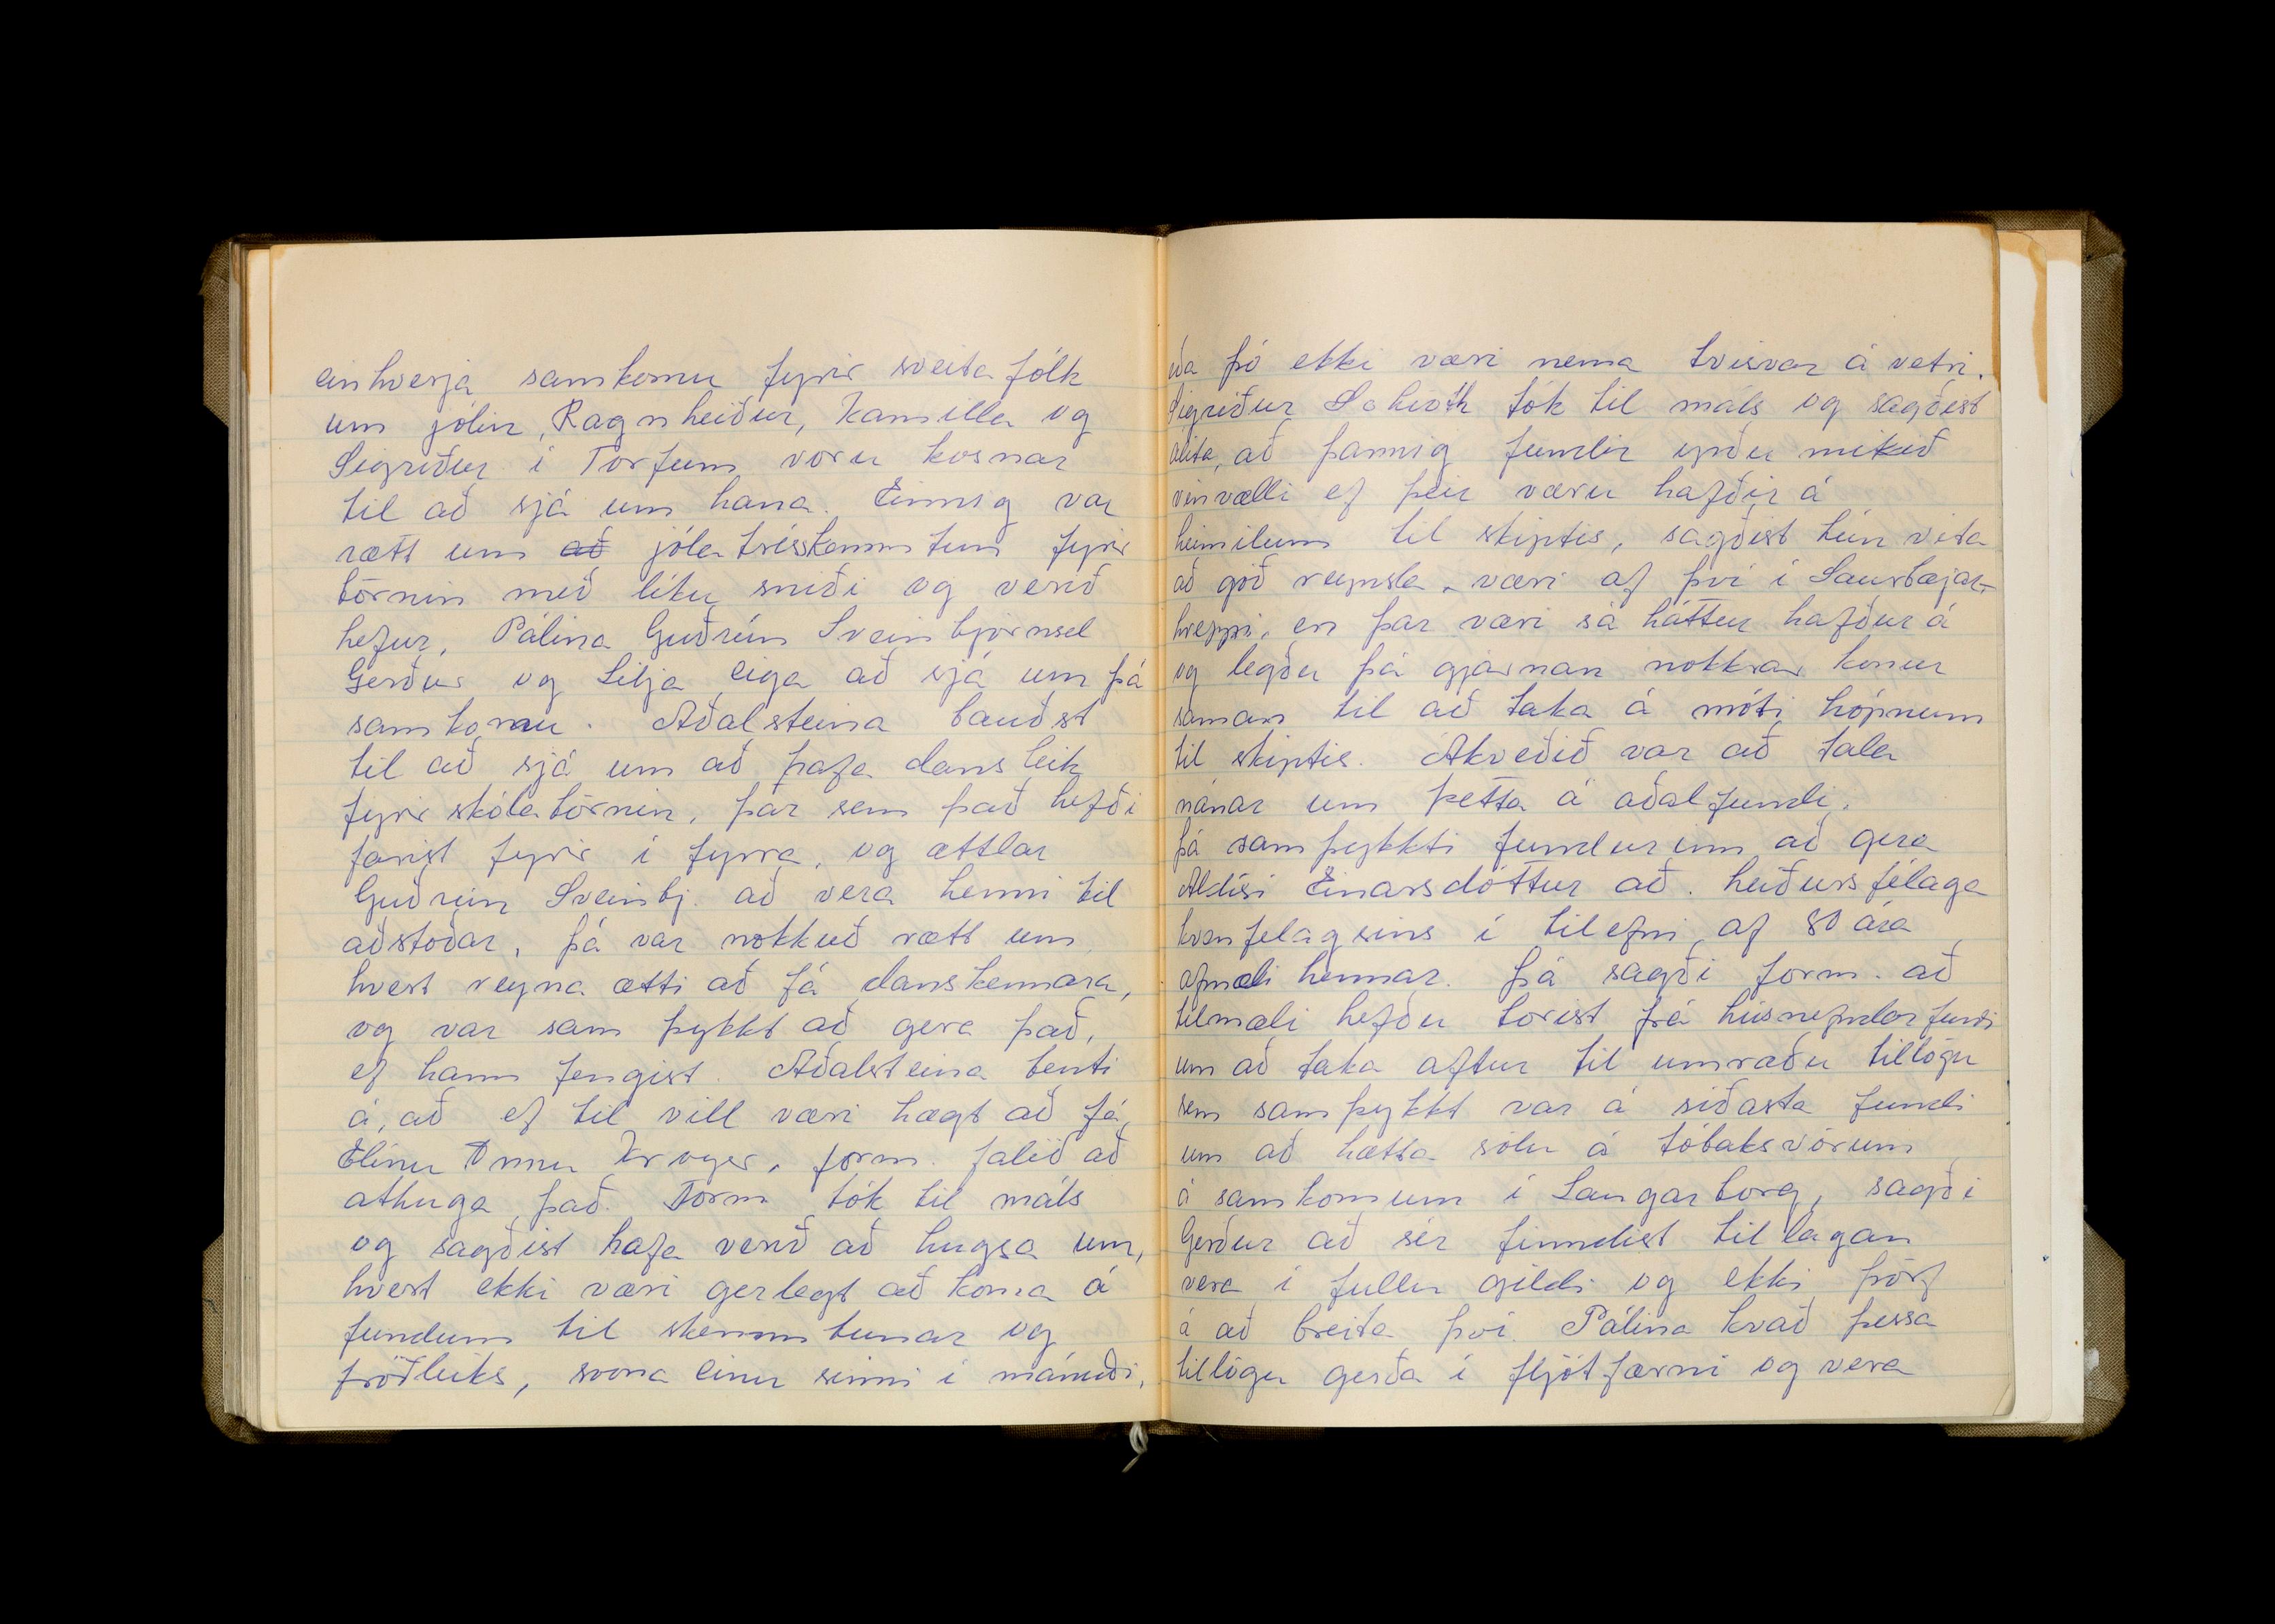 einhverja samkomu fyrir sveitafólk
um jólin, Ragnheiður, Kamilla og
Sigríður í Torfum voru kosnar
til að sjá um hana. Einnig var
rætt um að jólatrésskemmtun fyrir
börnin með líku sniði og verið
hefur, Pálína Guðrún Sveinbjörnsd
Gerður og Lilja eiga að sjá um þá
samkomu. Aðalsteina bauðst
til að sjá um að hafa dansleik
fyrir skólabörnin, þar sem það hefði
farist fyrir í fyrra, og ættlar
Guðrún Sveinbj. að vera henni til
aðstoðar, þá var nokkuð rætt um
hvert reyna ætti að fá danskennara,
og var samþykkt að gera það,
ef hann fengist. Aðalsteina benti
á, að ef til vill væri hægt að fá
Elínu Önnu Kroyer, form. falið að
athuga það. Form tók til máls
og sagðist hafa verið að hugsa um,
hvert ekki væri gerlegt að koma á
fundum til skemmtunar og
fróðleiks, svona einu sinni í mánuði,
eða þó ekki væri nema tvisvar á vetri.
Sigríður Schiöth tók til máls og sagðist
álíta, að þannig fundir yrðu mikið
vinvælli ef þeir væru hafðir á
heimilum til skiptis, sagðist hún vita
að góð reynsla væri af því í Saurbæjar-
hreppi, en þar væri sá háttur hafður á
og legðu þá gjarnan nokkrar konur
saman til að taka á móti hópnum
til skiptis. Ákveðið var að tala
nánar um þetta á aðalfundi.
Þá samþykkti fundurinn að gera
Aldísi Einarsdóttur að heiðursfélaga
kvenfelagsins í tilefni af 80 ára
afmæli hennar. Þá sagði form. að
tilmæli hefðu borist frá húsnefndarfundi
um að taka aftur til umræðu tillögu
sem samþykkt var á síðasta fundi
um að hætta sölu á tóbaksvörum
á samkomum í Laugarborg, sagði
Gerður að sér finndist tillagan
vera í fullu gildi og ekki þörf
á að breita því. Pálína kvað þessa
tillögu gerða í fljótfærni og vera